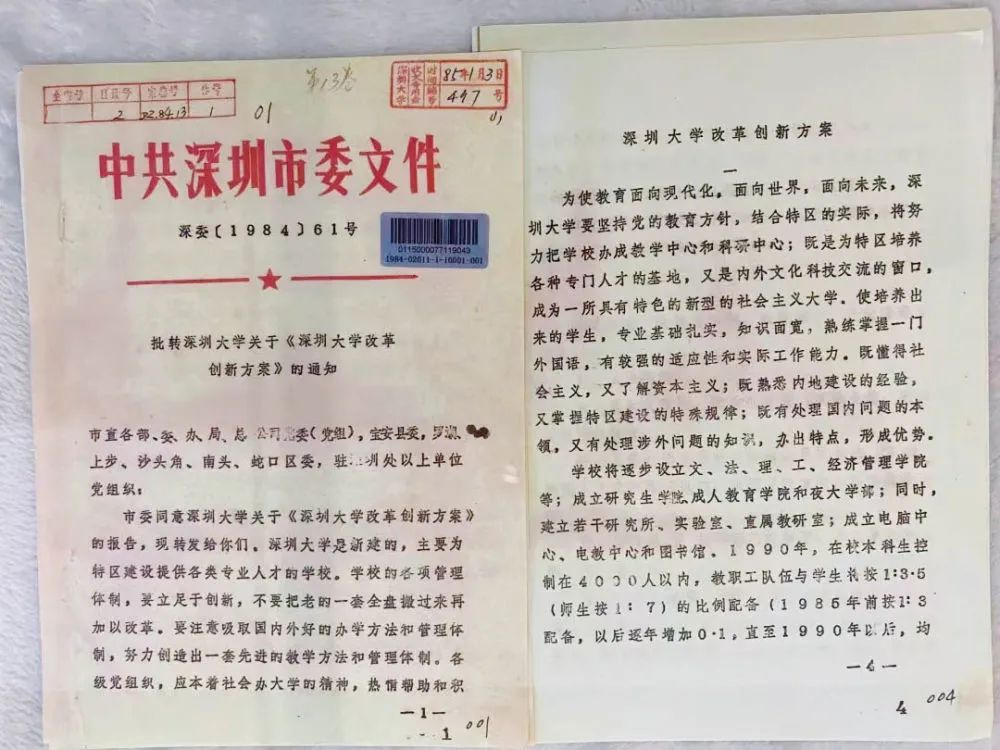 全宗号 目录号 案卷号 件号
2 DZ.84.13 1
第13卷
01
深圳大学
收文专用章
时间 85年1月3日
编号 447号
01
中共深圳市委文件
深委〔1984〕61号
0115000077119043
1984-02611-1-10001-001
批转深圳大学关于《深圳大学改革
创新方案》的通知
市直各部、委、办、局、总公司党委(党组),宝安县委,罗湖、
上步、沙头角、南头、蛇口区委,驻深圳处以上单位
党组织:
市委同意深圳大学关于《深圳大学改革创新方案》
的报告,现转发给你们。深圳大学是新建的,主要为
特区建设提供各类专业人才的学校。学校的各项管理
体制,要立足于创新,不要把老的一套全盘搬过来再
加以改革。要注意吸取国内外好的办学方法和管理体
制,努力创造出一套先进的教学方法和管理体制。各
级党组织,应本着社会办大学的精神,热情帮助和积
—1—
1 001
深圳大学改革创新方案
一
为使教育面向现代化,面向世界,面向未来,深
圳大学要坚持党的教育方针,结合特区的实际,将努
力把学校办成教学中心和科研中心;既是为特区培养
各种专门人才的基地,又是内外文化科技交流的窗口,
成为一所具有特色的新型的社会主义大学。使培养出
来的学生,专业基础扎实,知识面宽,熟练掌握一门
外国语,有较强的适应性和实际工作能力。既懂得社
会主义,又了解资本主义;既熟悉内地建设的经验,
又掌握特区建设的特殊规律;既有处理国内问题的本
领,又有处理涉外问题的知识,办出特点,形成优势。
学校将逐步设立文、法、理、工、经济管理学院
等;成立研究生学院、成人教育学院和夜大学部;同时,
建立若干研究所、实验室、直属教研室;成立电脑中
心、电教中心和图书馆。1990年,在校本科生控
制在4000人以内,教职工队伍与学生将按1:3·5
(师生按1:7)的比例配备(1985年前按1:3
配备,以后逐年增加0·1。直至1990年以后,均
—4—
4 004